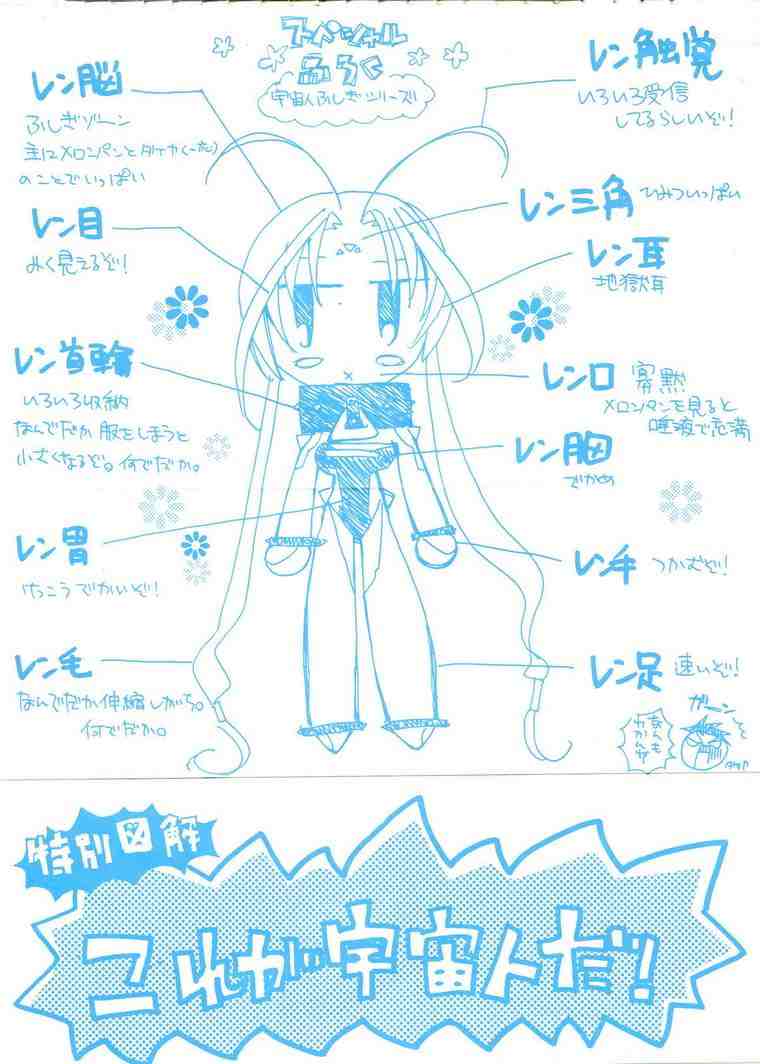 スペシャル
ふろく
宇宙人ふしぎシリーズ!
レン脳
ふしぎゾーン
主にメロンパンと
のことでいっぱい
レン触覚
いろいろ受信
してるらしいぞ!
レン三角
ひみついっぱい
レン目
みく見えるぞ!
レン耳
地獄耳
レン首輪
いろいろ収納
なんでだか服をしまうと
小さくなるぞ。何でだか。
レン口
寡黙
メロンパンを見ると
唾液で充満
レン胸
でかめ
レン胃
けっこうでかいぞ!
レン手
つかむぞ!
レン毛
なんでだか伸縮しがち。
何でだか。
レン足
速いぞ!
ガーン
特別図解
これが宇宙人だ!